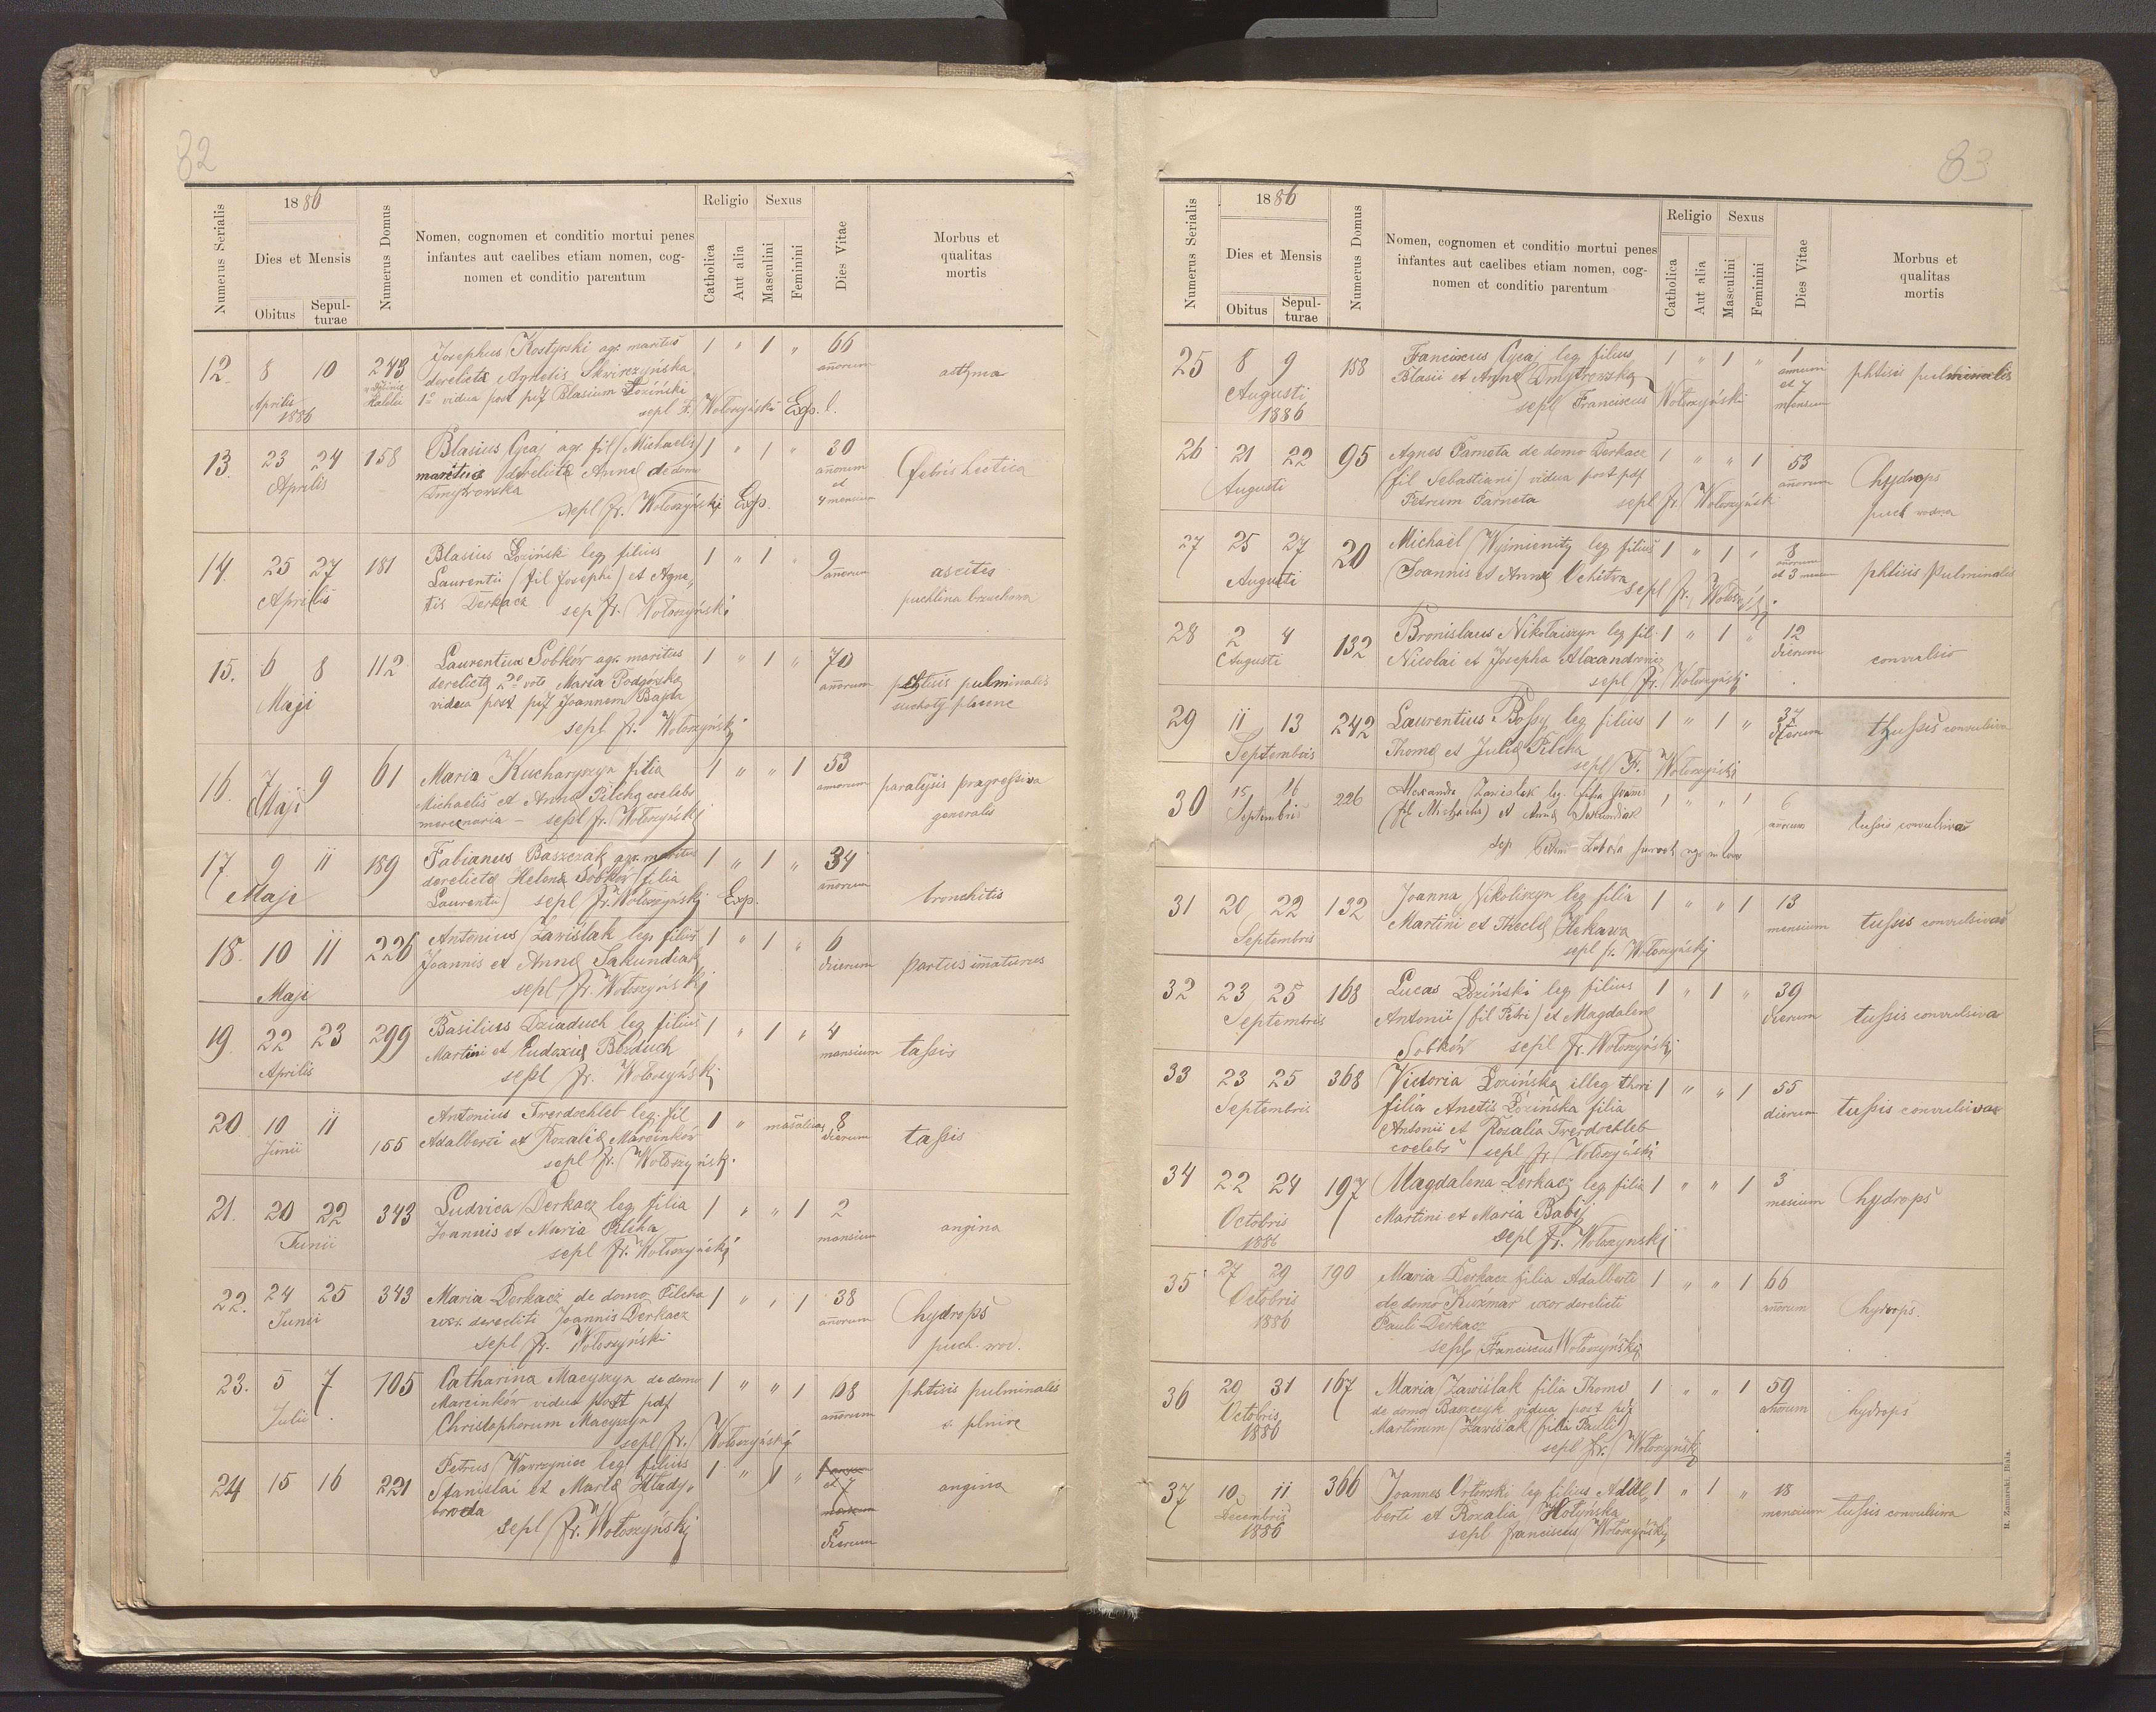 82
Numerus Serialis
1886
Dies et Mensis
Obitus
Sepul-
turae
Numerus Domus
Nomen, cognomen et conditio mortui penes
infantes aut caelibes etiam nomen, cog-
nomen et conditio parentum
Religio
Catholica
Aut alia
Sexus
Masculini
Feminini
Dies Vitae
Morbus et
qualitas
mortis
12. 8 10 243 Josephus Kostyrski agr. maritus 1 " 1 " 66
Aprilis 1886 derelictæ Agnetis Skwirczyńska annorum asthma
1o vidua post pdf Blasium Łoziński
sepl F. Wołoszyński Exp. l.
13. 23 24 158 Blasius Cycaj agr. fil (Michaelis) 1 " 1 " 30
Aprilis maritus derelictæ Annæ de domo annorum et febris hectica
Dmytrowska 4 mensium
sepl fr. Wołoszyński Exp.
14. 25 27 181 Blasius Łoziński leg. filius 1 " 1 " 9
Aprilis Laurentii (fil Josephi) et Agne- annorum ascites
tis Derkacz sep fr. Wołoszyński puchlina brzuchowa
15. 6 8 112 Laurentius Sobków agr. maritus 1 " 1 " 70
Maji derelictæ 2do voto Maria Podgórska annorum phtisis pulminalis
vidua post pdf Joannem Bajda suchoty płucne
sepl fr. Wołoszyński
16. 7 9 61 Maria Kucharyszyn filia 1 " " 1 53
Maji Michaelis et Annæ Pilcha coelebs annorum paralysis progressiva
mercenaria - sepl fr. Wołoszyński generalis
17. 9 11 189 Fabianus Baszczak agr. maritus 1 " 1 " 34
Maji derelictæ Helenæ Sobków (filia annorum
Laurentii) sepl fr. Wołoszyński Exp. bronchitis
18. 10 11 226 Antonius Zawiślak leg. filius 1 " 1 " 6
Maji Joannis et Annæ Sakundiak dierum partus immaturus
sepl fr. Wołoszyński
19. 22 23 299 Basilius Dziaduch leg. filius 1 " 1 " 4
Aprilis Martini et Eudoxiæ Bozduch mensium tussis
sepl fr. Wołoszyński
20. 10 11 155 Antonius Twerdochleb leg. fil 1 " 8
Junii Adalberti et Rozaliæ Marcinków dierum tussis
sepl fr. Wołoszyński
21. 20 22 343 Ludvica Derkacz leg. filia 1 " " 1 2
Junii Joannis et Maria Pilcha mensium angina
sepl fr. Wołoszyński
22. 24 25 343 Maria Derkacz de domo Pilcha 1 " " 1 38
Junii uxor derelicti Joannis Derkacz annorum hydrops
sepl fr. Wołoszyński puch. wod.
23. 5 7 105 Catharina Macyszyn de domo 1 " " 1 68
Julii Marcinków vidua post pdf annorum phtisis pulminalis
Christophorum Macyszyn s. płucne
sepl fr. Wołoszyński
24 15 16 221 Petrus Wawrzyniec leg. filius 1 " 1 "
Stanislai et Mariæ Hłady- angina
boroda 5
sepl fr. Wołoszyński dierum
83
Numerus Serialis
1886
Dies et Mensis
Obitus
Sepul-
turae
Numerus Domus
Nomen, cognomen et conditio mortui penes
infantes aut caelibes etiam nomen, cog-
nomen et conditio parentum
Religio
Catholica
Aut alia
Sexus
Masculini
Feminini
Dies Vitae
Morbus et
qualitas
mortis
25 8 9 158 Franciscus Cycaj leg. filius 1 " 1 " 1
Augusti Blasii et Annæ Dmytrowska annum et 7 phtisis pulminalis
1886 sepl Franciscus Wołoszyński mensium
26 21 22 95 Agnes Parneta de domo Derkacz 1 " " 1 53
Augusti (fil Sebastiani) vidua post pdf annorum hydrops
Petrum Parneta sepl fr. Wołoszyński puch wodna
27 25 27 20 Michael Wyśmienity leg. filius 1 " 1 " 8
Augusti Joannis et Annæ Ochitwa annorum et 3 phtisis pulminalis
sepl fr. Wołoszyński
28 2 4 132 Bronislaus Nikolaiszyn leg fil. 1 " 1 " 12
Augusti Nicolai et Josepha Alexandrowicz dierum convulsio
sepl fr. Wołoszyński
29 11 13 242 Laurentius Bossy leg. filius 1 " 1 " 37
Septembris Thomæ et Juliæ Pilcha dierum tussis convulsiva
sepl Fr. Wołoszyński
30 15 16 226 Alexandra Zawislak leg. filia Joan. 1 " " 1 6
Septembris (fil Michaelis) et Annæ Sakundiak annorum tussis convulsiva
sep
31 20 22 132 Joanna Nikoliszyn leg filia 1 " " 1 13
Septembris Martini et Theclæ Hekawa mensium tussis convulsiva
sepl fr. Wołoszyński
32 23 25 168 Lucas Łoziński leg. filius 1 " 1 " 39
Septembris Antonii (fil Petri) et Magdalenæ dierum tussis convulsiva
Sobków sepl fr. Wołoszyński
33 23 25 368 Victoria Łozińska illeg. thori 1 " " 1 55
Septembris filia Anetis Łozińska filia dierum tussis convulsiva
Antonii et Rozalia Twerdochleb
coelebs sepl fr. Wołoszyński
34 22 24 197 Magdalena Derkacz leg. filia 1 " " 1 3
Octobris Martini et Maria Babij mesium hydrops
1886 sepl fr. Wołoszynski
35 27 29 190 Maria Derkacz filia Adalberti 1 " " 1 66
Octobris de domo Kuźmar uxor derelicti annorum hydrops.
1886 Pauli Derkacz
sepl Franciscus Wołoszyński
36 29 31 167 Maria Zawislak filia Thomæ 1 " " 1 59
Octobris de domo Baszczyk vidua post pdf annorum hydrops
1886 Martinum Zawislak (filii Pauli)
sepl fr. Wołoszyński
37 10 11 366 Joannes Ortowski leg. filius Adal- 1 " 1 " 18
Decembris berti et Rozalia Hołyńska mensium tussis convulsiva
1886 sepl Franciscus Wołoszyński
R. Zamarski, Biała.